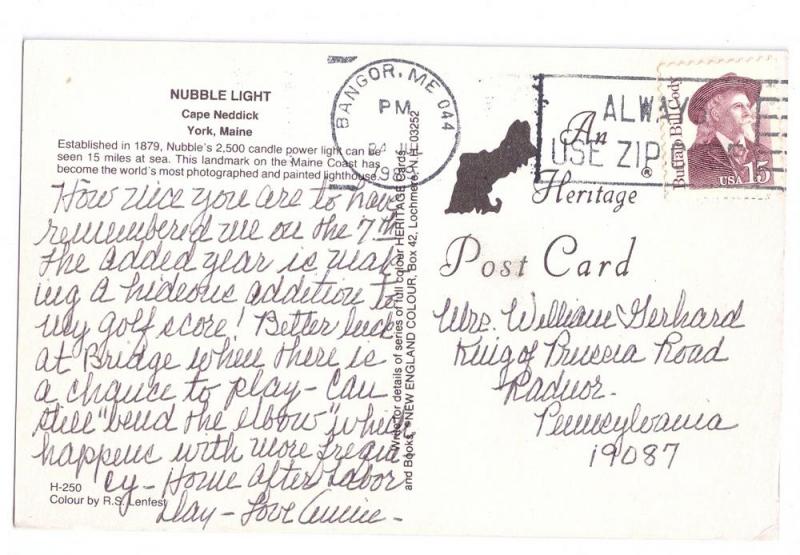 NUBBLE LIGHT
Cape Neddick
York, Maine
Established in 1879, Nubble's 2,500 candle power light can be
seen 15 miles at sea. This landmark on the Maine Coast has
become the world's most photographed and painted lighthouse.
How nice you are to have
remembered me on the 7th
The added year is mak-
ing a hideous addition to
my golf score! Better luck
at Bridge when there is
a chance to play - Can
still "bend the elbow" which
happens with more frequen
cy - Home After Labor
Day - Love
H-250
Colour by R.S. Lenfest
Write for details of series of full colour HERITAGE Cards
and Books, © NEW ENGLAND COLOUR, Box 42, Lochmere, N.H. 03252
BANGOR, ME 044
PM
198
ALWAYS
USE ZIP
®
An
Heritage
Post Card
Buffalo Bill Cody
USA 15
Mrs. William Gerhard
King of Prussia Road
Radnor.
Pennsylvania
19087